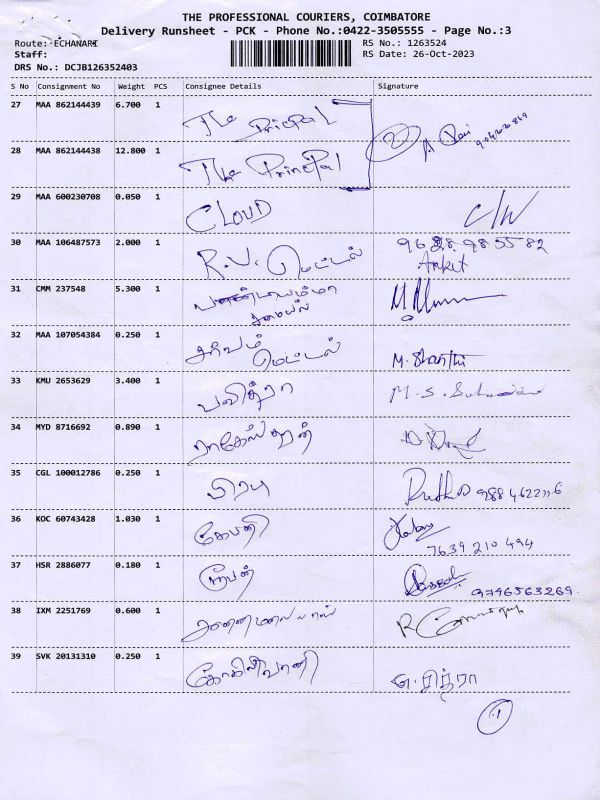 THE PROFESSIONAL COURIERS, COIMBATORE
Delivery Runsheet - PCK - Phone No.:0422-3505555 - Page No.:3
Route: ECHANARI RS No.: 1263524
Staff: RS Date: 26-Oct-2023
DRS No.: DCJB126352403
S No Consignment No Weight PCS Consignee Details Signature
27 MAA 862144439 6.700 1 The Principal
28 MAA 862144438 12.800 1 The Principal
29 MAA 600230708 0.050 1 CLOUD C/W
30 MAA 106487573 2.000 1 R.V. மெட்டல் 9628985582
Ankit
31 CMM 237548 5.300 1
சமையல்
32 MAA 107054384 0.250 1 சர்வம்
மெட்டல் M. Shanthi
33 KMU 2653629 3.400 1 பவித்ரா M. S.
34 MYD 8716692 0.890 1
35 CGL 100012786 0.250 1 பிரபு 9884622116
36 KOC 60743428 1.030 1
7639 210 494
37 HSR 2886077 0.180 1 ரூபன் 9746563269
38 IXM 2251769 0.600 1 R
39 SVK 20131310 0.250 1 கோகிலவாணி சித்ரா